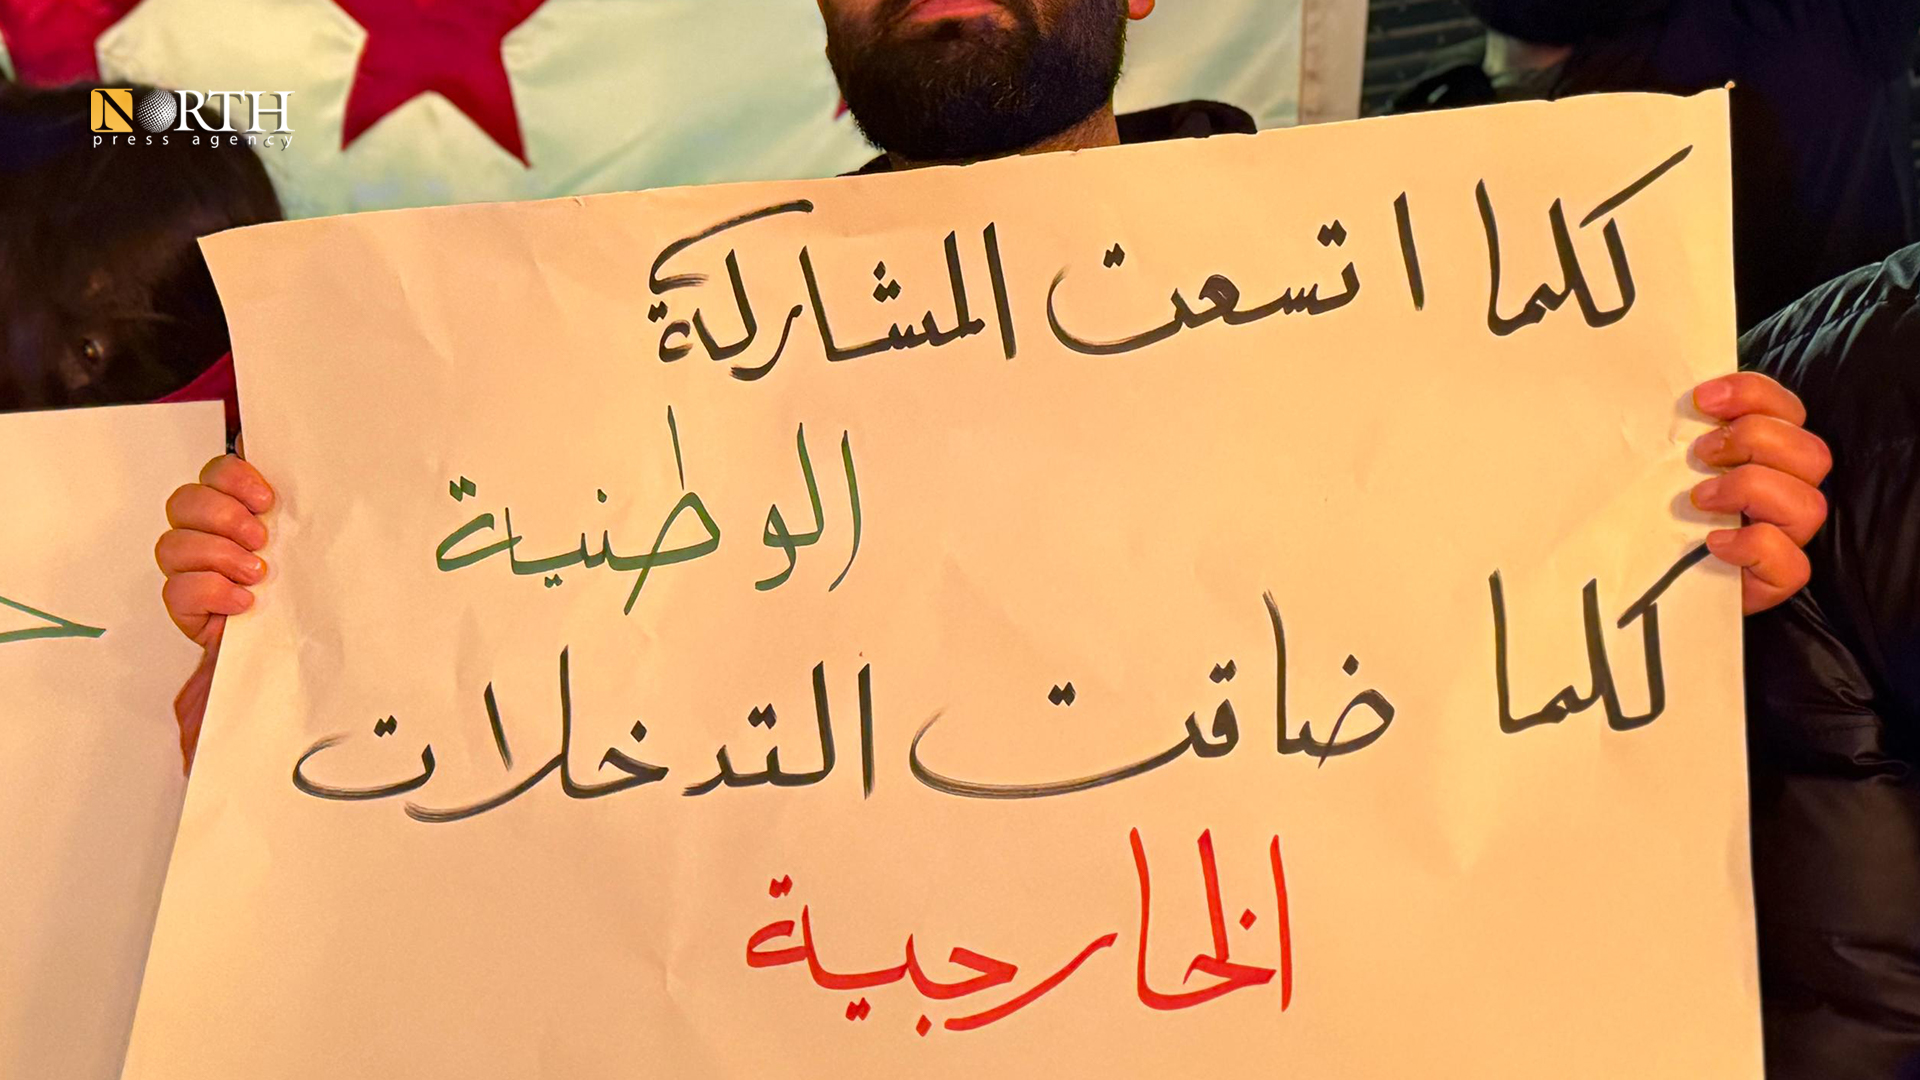 NORTH
press agency
كلما اتسعت المشاركة
الوطنية
كلما ضاقت التدخلات
الخارجية